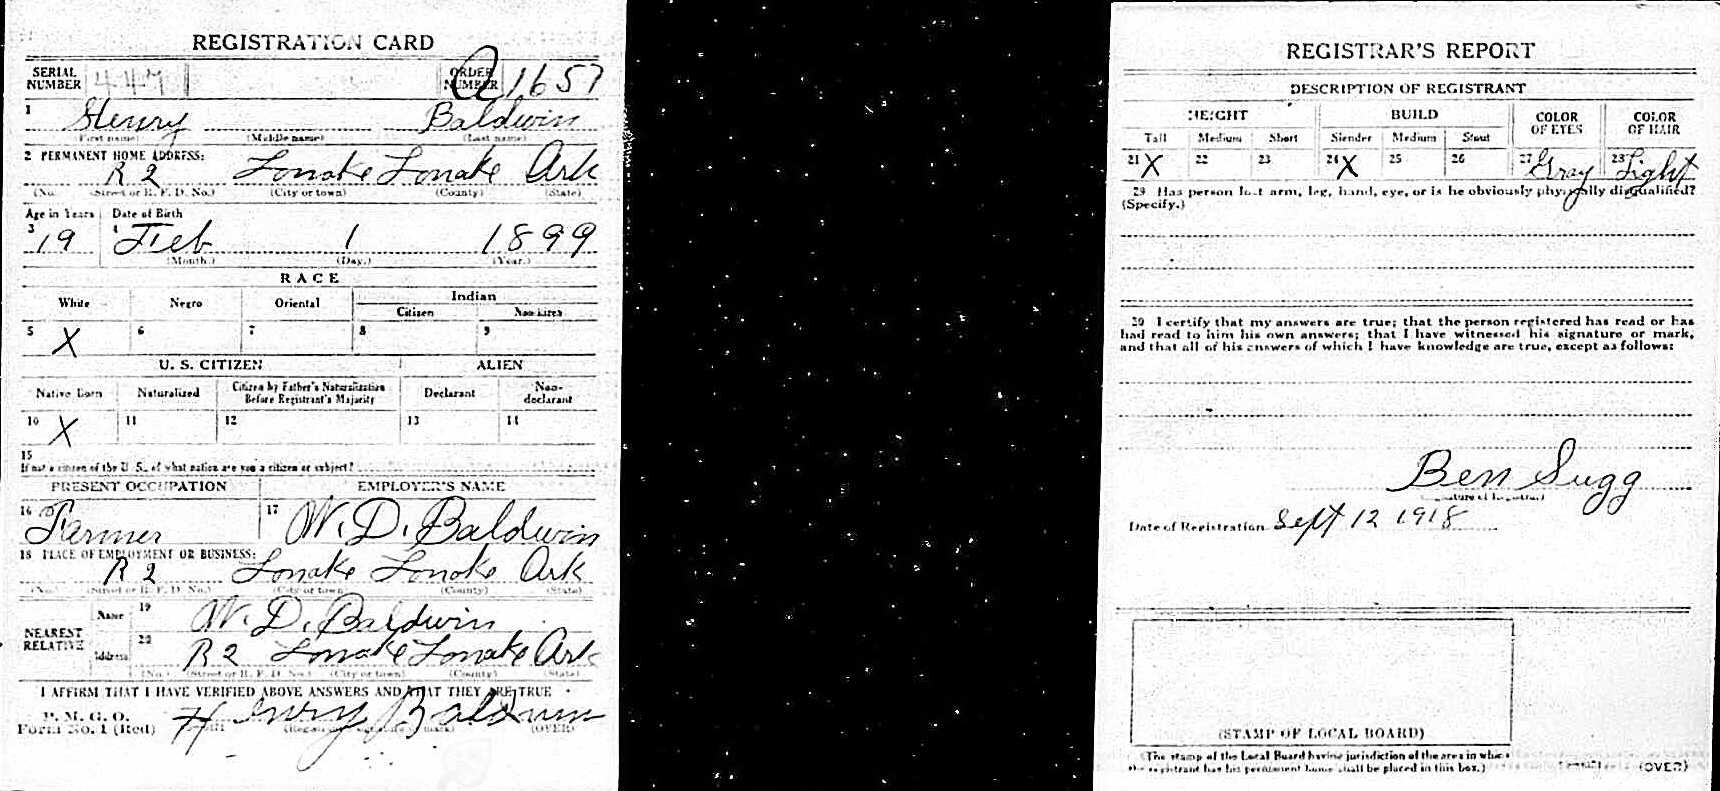 REGISTRATION CARD
SERIAL NUMBER 447 ORDER NUMBER A1657
1 Henry Baldwin
(First name) (Middle name) (Last name)
2 PERMANENT HOME ADDRESS:
R 2 Lonoke Lonoke Ark
(No.) (Street or R. F. D. No.) (City or town) (County) (State)
Age in Years Date of Birth
3 19 4 Feb 1 1899
(Month.) (Day.) (Year.)
RACE
White Negro Oriental Indian
Citizen Noncitizen
5 X 6 7 8 9
U. S. CITIZEN ALIEN
Native Born Naturalized Citizen by Father's Naturalization Before Registrant's Majority Declarant Non-declarant
10 X 11 12 13 14
15
If not a citizen of the U. S., of what nation are you a citizen or subject?
PRESENT OCCUPATION EMPLOYER'S NAME
16 Farmer 17 W. D. Baldwin
18 PLACE OF EMPLOYMENT OR BUSINESS:
R 2 Lonoke Lonoke Ark
(No.) (Street or R. F. D. No.) (City or town) (County) (State)
NEAREST RELATIVE
Name 19 W. D. Baldwin
Address 20 R 2 Lonoke Lonoke Ark
(No.) (Street or R. F. D. No.) (City or town) (County) (State)
I AFFIRM THAT I HAVE VERIFIED ABOVE ANSWERS AND THAT THEY ARE TRUE
P. M. G. O.
Form No. 1 (Red) Henry Baldwin
(Registrant's signature or mark) (OVER)
REGISTRAR'S REPORT
DESCRIPTION OF REGISTRANT
HEIGHT BUILD COLOR OF EYES COLOR OF HAIR
Tall Medium Short Slender Medium Stout
21 X 22 23 24 X 25 26 27 Gray 28 Light
29 Has person lost arm, leg, hand, eye, or is he obviously physically disqualified?
(Specify.)
30 I certify that my answers are true; that the person registered has read or has
had read to him his own answers; that I have witnessed his signature or mark,
and that all of his answers of which I have knowledge are true, except as follows:
Ben Sugg
(Signature of Registrar)
Date of Registration Sept 12 1918
(STAMP OF LOCAL BOARD)
(The stamp of the Local Board having jurisdiction of the area in which
the registrant has his permanent home shall be placed in this box.)
(OVER)